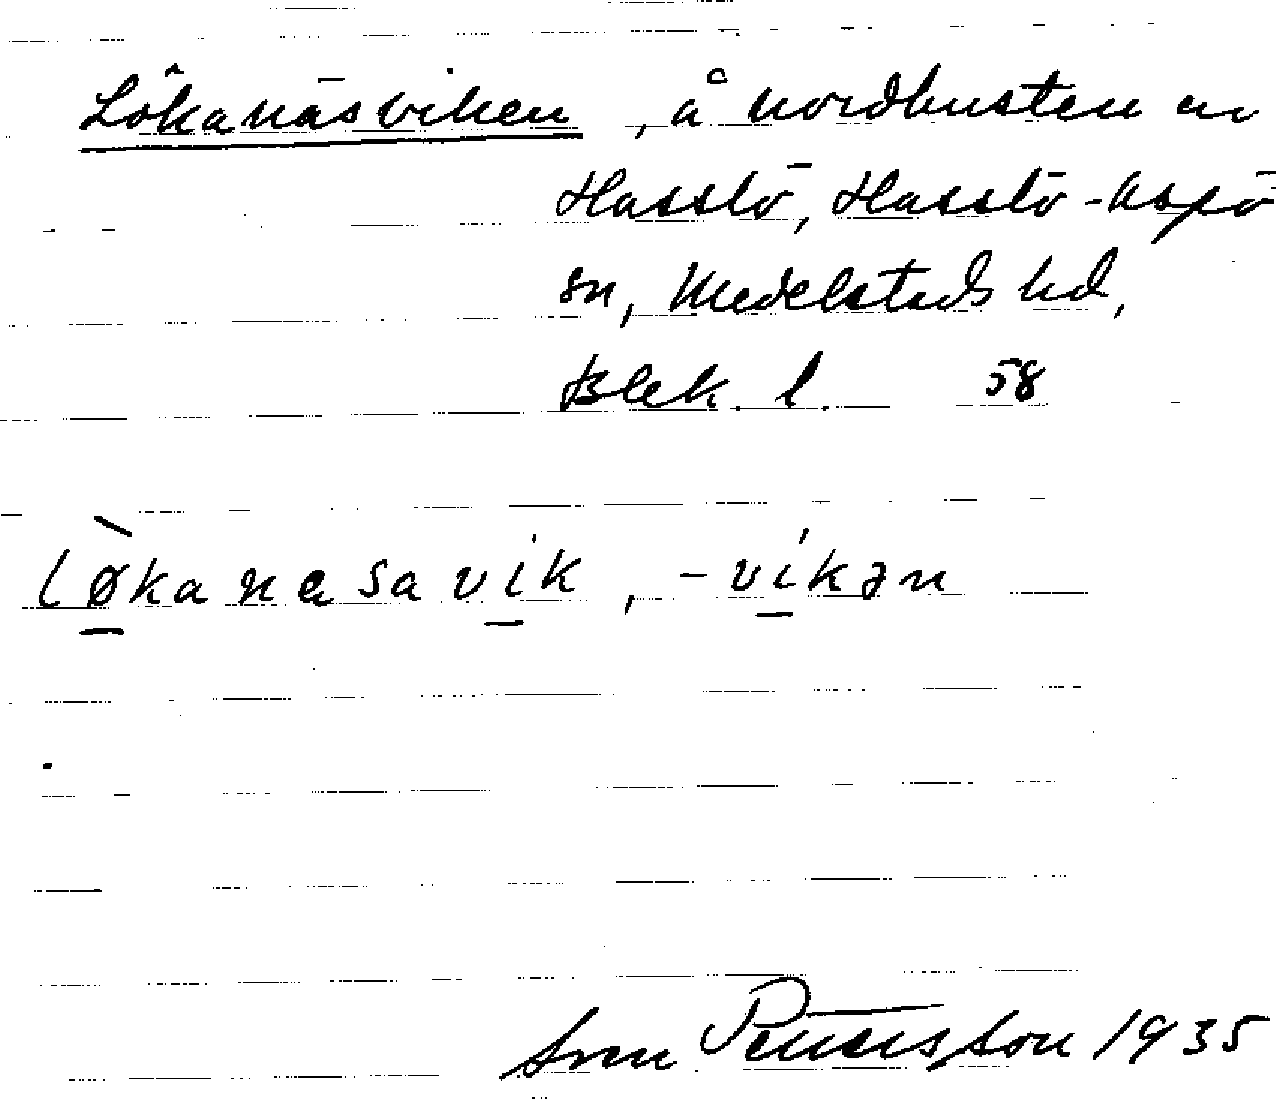 Lökanäsviken, å nordkusten av
Hasslö, Hasslö-Aspö
sn, Medelstads hd,
Blek. l. 58
løkanesavik, -vikən
Sven Pettersson 1935